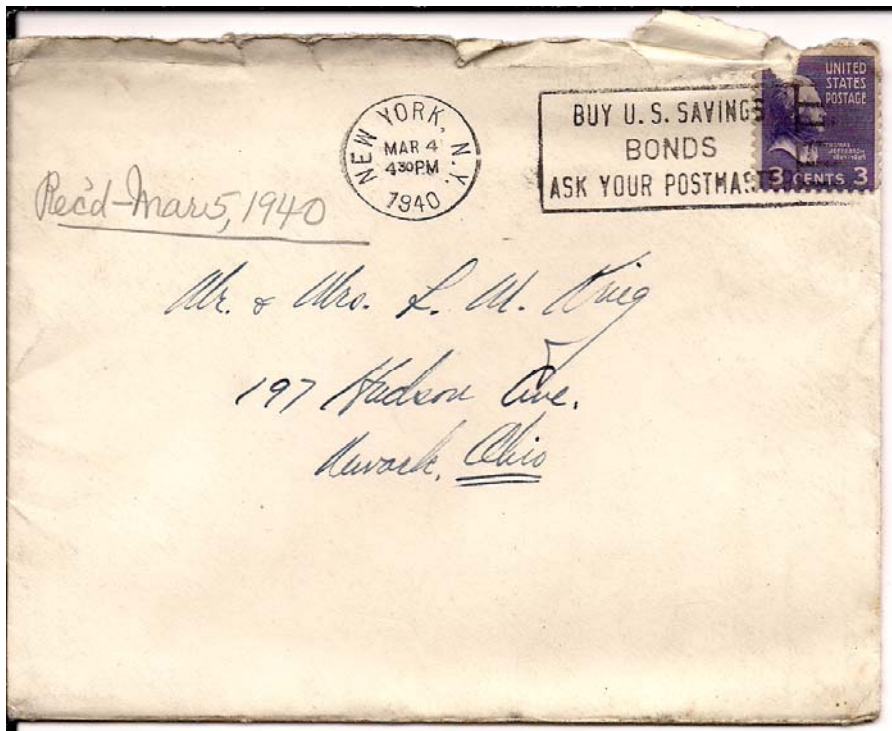 NEW YORK, N.Y.
MAR 4
4 30 PM
1940
BUY U.S. SAVINGS
BONDS
ASK YOUR POSTMASTER
UNITED
STATES
POSTAGE
THOMAS
JEFFERSON
1801-1809
3 CENTS 3
Rec'd-Mar 5, 1940
Mr. & Mrs. L. M. Krieg
197 Hudson Ave.
Newark, Ohio